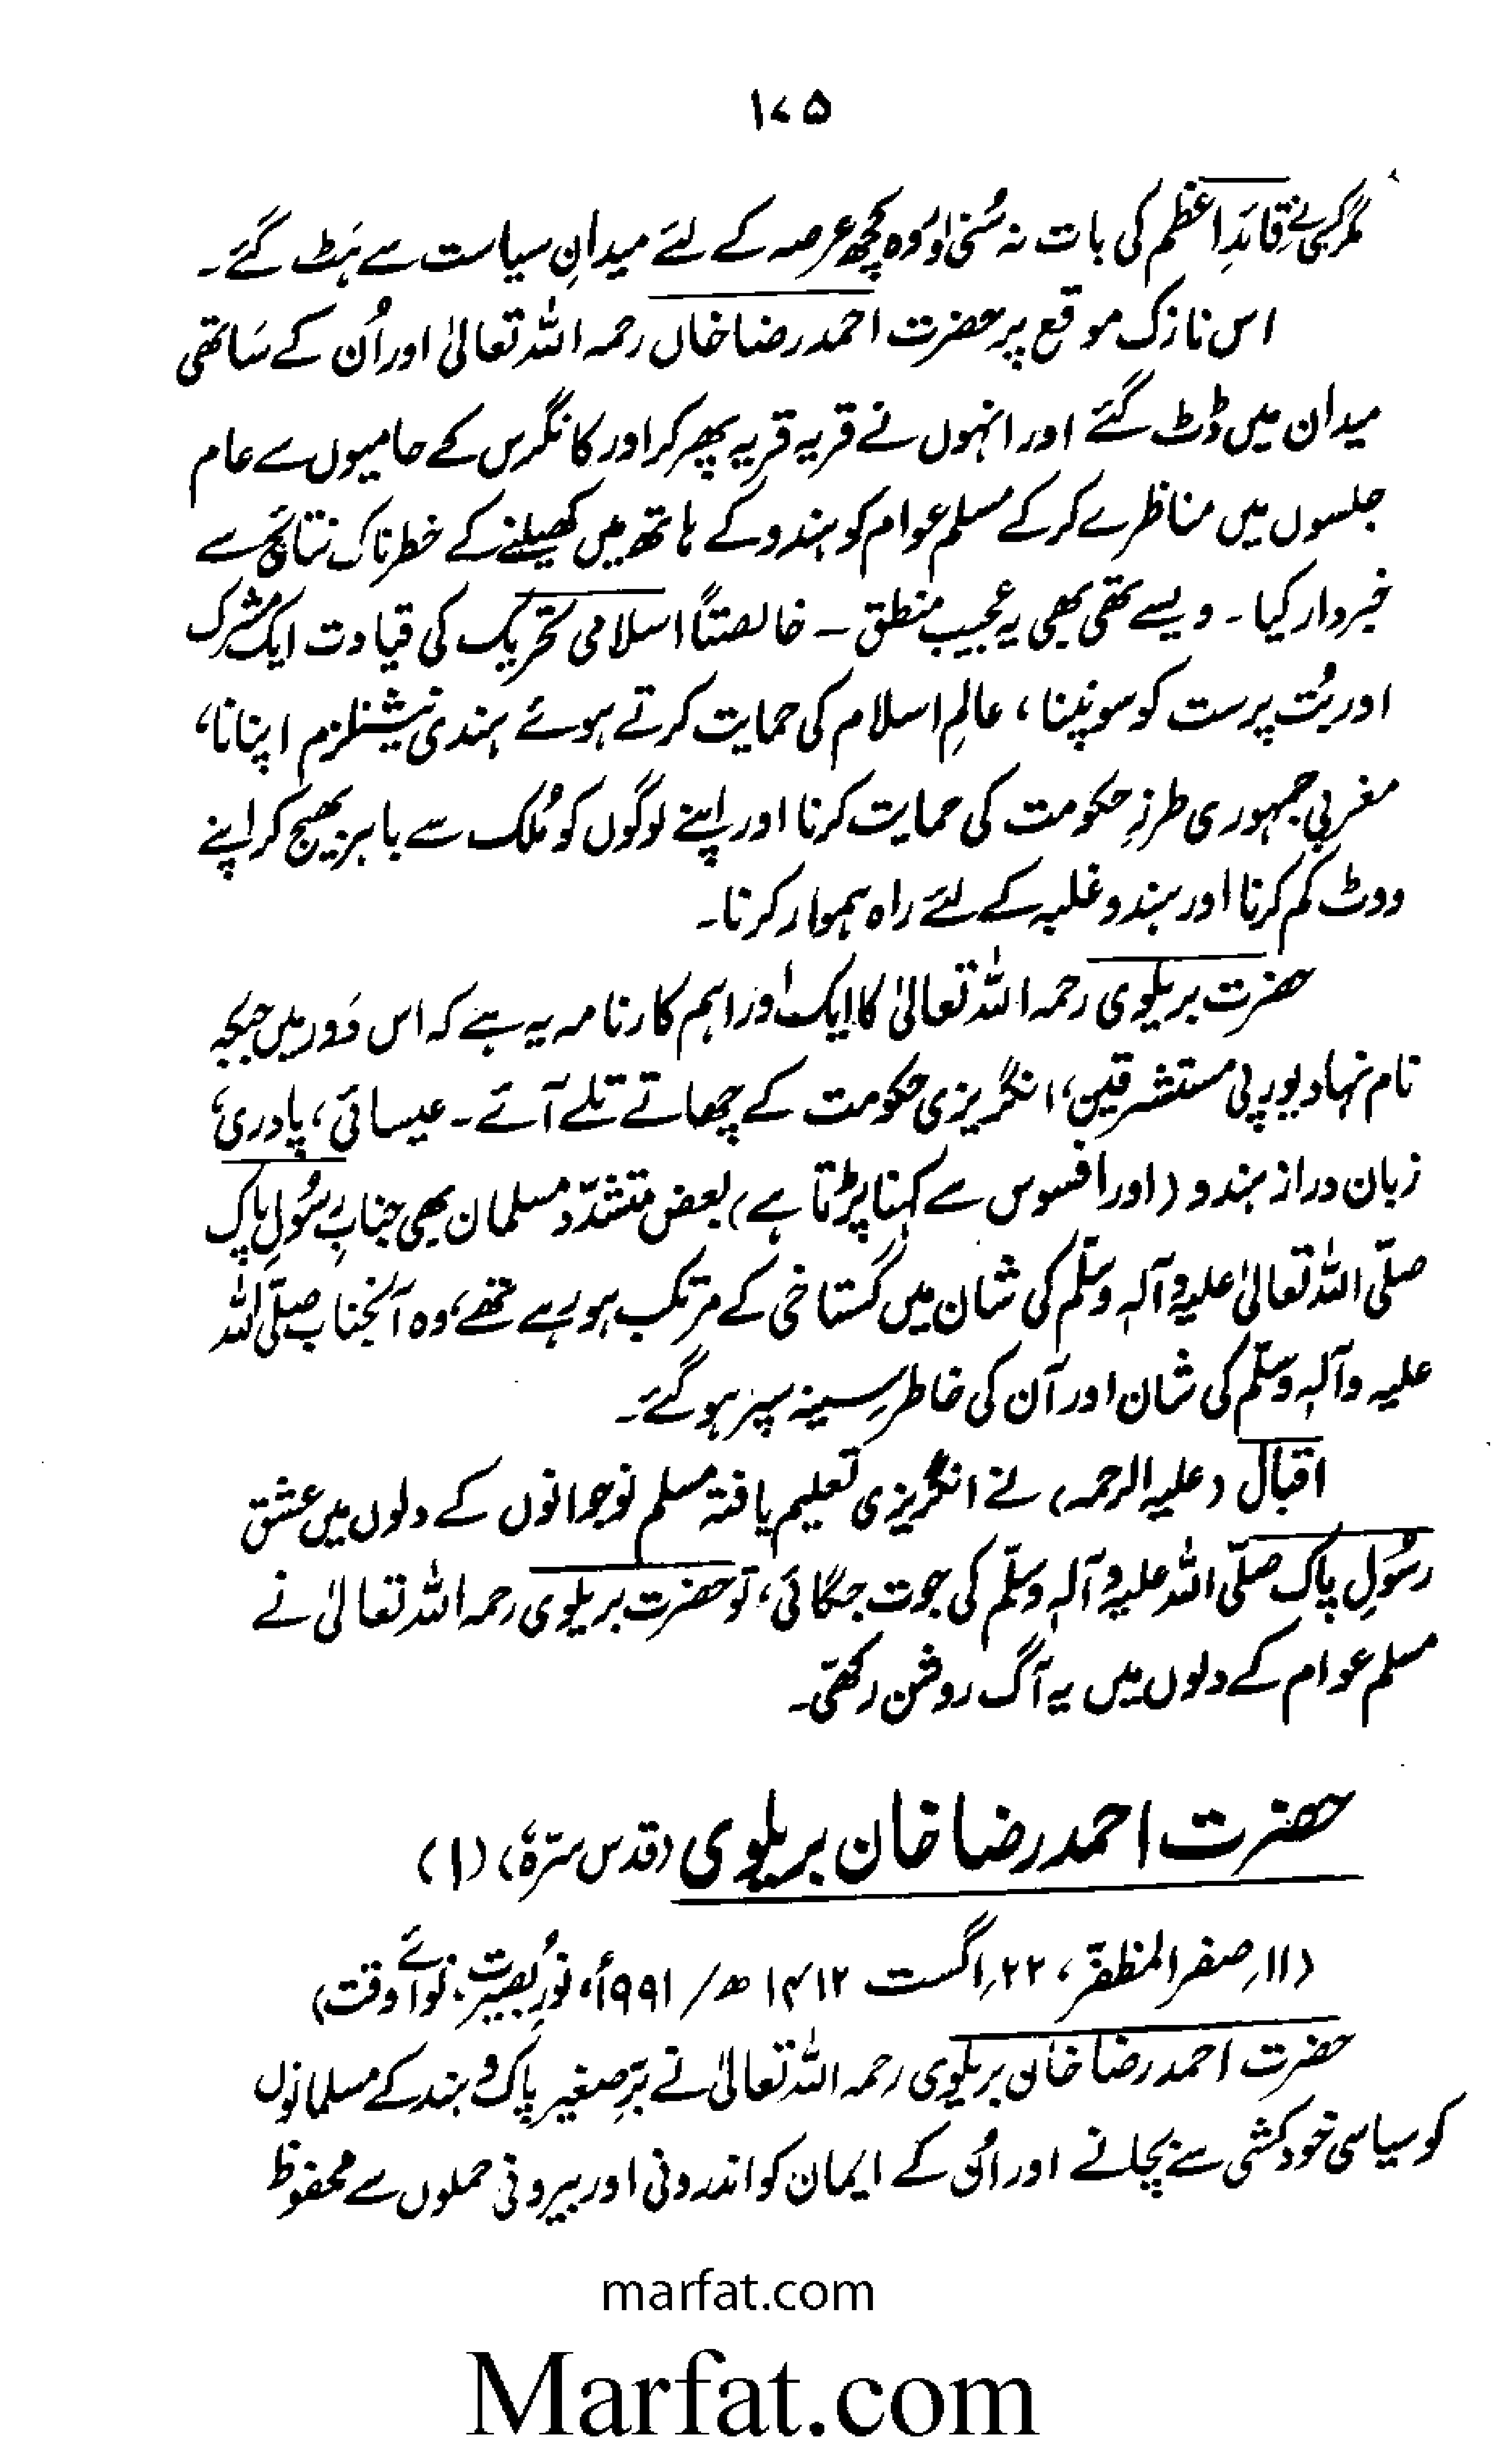 ۱۷۵
مگر کسی نے قائدِ اعظم کی بات نہ سُنی اور وہ کچھ عرصہ کے لئے میدانِ سیاست سے ہَٹ گئے۔
اس نازک موقع پر حضرت احمد رضا خاں رحمہ اللہ تعالیٰ اور اُن کے سَاتھی
میدان میں ڈٹ گئے اور انہوں نے قریہ قریہ پھر کر اور کانگرس کے حامیوں سے عام
جلسوں میں مناظرے کرکے مسلم عوام کو ہندو کے ہاتھ میں کھیلنے کے خطرناک نتائج سے
خبردار کیا۔ ویسے تھی بھی یہ عجیب منطق۔ خالصتاً اسلامی تحریک کی قیادت ایک مشرک
اور بُت پرست کو سونپنا، عالمِ اسلام کی حمایت کرتے ہوئے ہندی نیشنلزم اپنانا،
مغربی جمہوری طرزِ حکومت کی حمایت کرنا اور اپنے لوگوں کو مُلک سے باہر بھیج کر اپنے
ووٹ کم کرنا اور ہندو غلبہ کے لئے راہ ہموار کرنا۔
حضرت بریلوی رحمہ اللہ تعالیٰ کا ایک اور اہم کارنامہ یہ ہے کہ اس دَور میں جبکہ
نام نہاد یورپی مستشرقین، انگریزی حکومت کے چھاتے تلے آئے۔ عیسائی، پادری،
زبان دراز ہندو (اور افسوس سے کہنا پڑتا ہے) بعض متشدّد مسلمان بھی جنابِ رسُولِ پاک
صلّی اللہ تعالیٰ علیہ وآلہٖ وسلّم کی شان میں گستاخی کے مرتکب ہو رہے تھے، وہ آنجناب صلّی اللہ
علیہ وآلہٖ وسلّم کی شان اور آن کی خاطر سینہ سپر ہو گئے۔
اقبال (علیہ الرحمہ) نے انگریزی تعلیم یافتہ مسلم نوجوانوں کے دلوں میں عشق
رسُولِ پاک صلّی اللہ علیہ وآلہٖ وسلّم کی جوت جگائی، تو حضرت بریلوی رحمہ اللہ تعالیٰ نے
مسلم عوام کے دلوں میں یہ آگ روشن رکھی۔
حضرت احمد رضا خان بریلوی (قدس سرّہٗ) (۱)
(۱۱؍صفر المظفّر، ۲۲؍اگست ۱۴۱۲ھ/ ۱۹۹۱ء، نورِ بصیرت، نوائے وقت)
حضرت احمد رضا خان بریلوی رحمہ اللہ تعالیٰ نے برِّصغیر پاک و ہند کے مسلمانوں
کو سیاسی خودکشی سے بچانے اور اُن کے ایمان کو اندرونی اور بیرونی حملوں سے محفوظ
marfat.com
Marfat.com